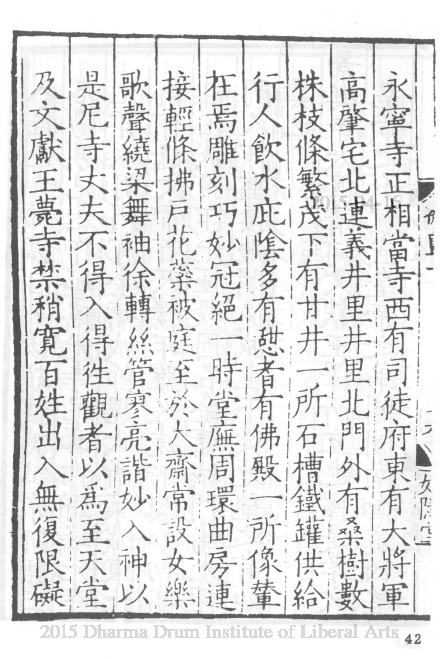 永寧寺正相當寺西有司徒府東有大將軍
高肇宅北連義井里井里北門外有桑樹數
株枝條繁茂下有甘井一所石槽鐵罐供給
行人飲水庇陰多有憩者有佛殿一所像輦
在焉雕刻巧妙冠絕一時堂廡周環曲房連
接輕條拂戶花蘂被庭至於大齋常設女樂
歌聲繞梁舞袖徐轉絲管寥亮諧妙入神以
是尼寺丈夫不得入得徃觀者以為至天堂
及文獻王薨寺禁稍寬百姓出入無復限礙
2015 Dharma Drum Institute of Liberal Arts
42